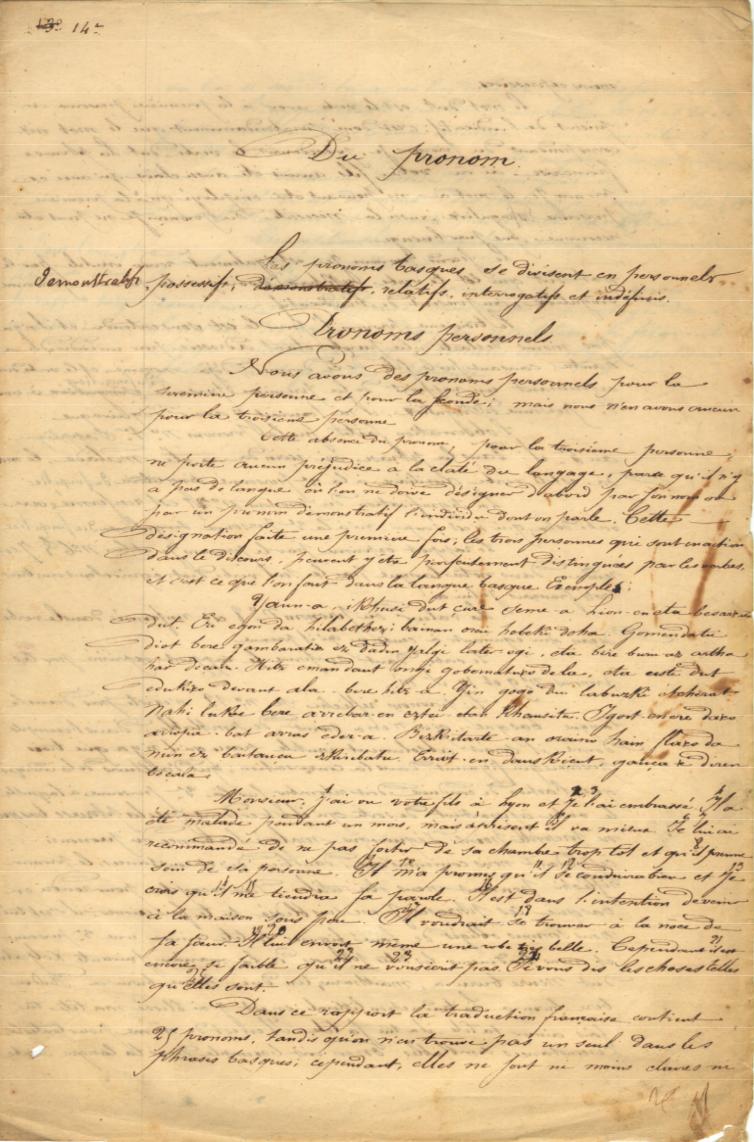 14e
Du pronom.
Les pronoms basques se divisent en personnels
Demonstratifs
possessifs, démonstratifs, relatifs, interrogatifs et indéfinis.
Pronoms personnels
Nous avons des pronoms personnels pour la
première personne et pour la seconde; mais nous n'en avons aucun
pour la troisième personne
Cette absence du pronom, pour la troisième personne,
ne porte aucun préjudice à la clarté du langage, parce qu'il n'y
a pas de langue où l'on ne doive désigner d'abord par son nom ou
par un pronom démonstratif l'individu dont on parle. Cette
désignation faite une première fois, les trois personnes qui sont en action
dans le discours, peuvent y être parfaitement distinguées par les verbes.
et c'est ce que l'on fait dans la langue basque. Exemples:
Yaun-a, ikhusi dut çure seme-a Lion-en eta besarkatu
dut. Eri egon da hilabethez; bainan orai hobeki doha. Gomendatu
diot bere gambaratic ez dadin yalgi laster-egi, eta bere buru-az artha
har deçan. Hitz eman daut ongi gobernatuco dela, eta uste dut
edukiko devant ala bere hitz-a. Yin gogo du laburzki etcherat
Nahi luke bere arreba-ren eztei-etan khausitu. Igorten dio
arropa-bat arras eder-a. Bizkitarte oraino hain flaco da
nun ez baitauçu izkribatu. Erraiten dauzkitçut, gauça-k diren
beçala
Monsieur, J'ai vu votre fils à Lyon et Je l'ai embrassé. Il a
été malade pendant un mois, mais à présent Il va mieux. Je lui ai
recommandé de ne pas sortir de sa chambre trop tôt et qu'il prenne
soin de sa personne. Il m'a promis qu'il se conduira bien et Je
crois qu'il me tiendra sa parole. Il est dans l'intention de venir
à la maison sous peu. Il voudrait se trouver à la noce de
sa sœur. Il lui envoie même une robe très belle. Cependant il est
encore si faible qu'il ne vous écrit pas. Je vous dis les choses telles
qu'elles sont.
Dans ce rapport la traduction française contient
25 pronoms, tandis qu'on n'en trouve pas un seul dans les
phrases basques; cependant, elles ne sont ni moins claires ni